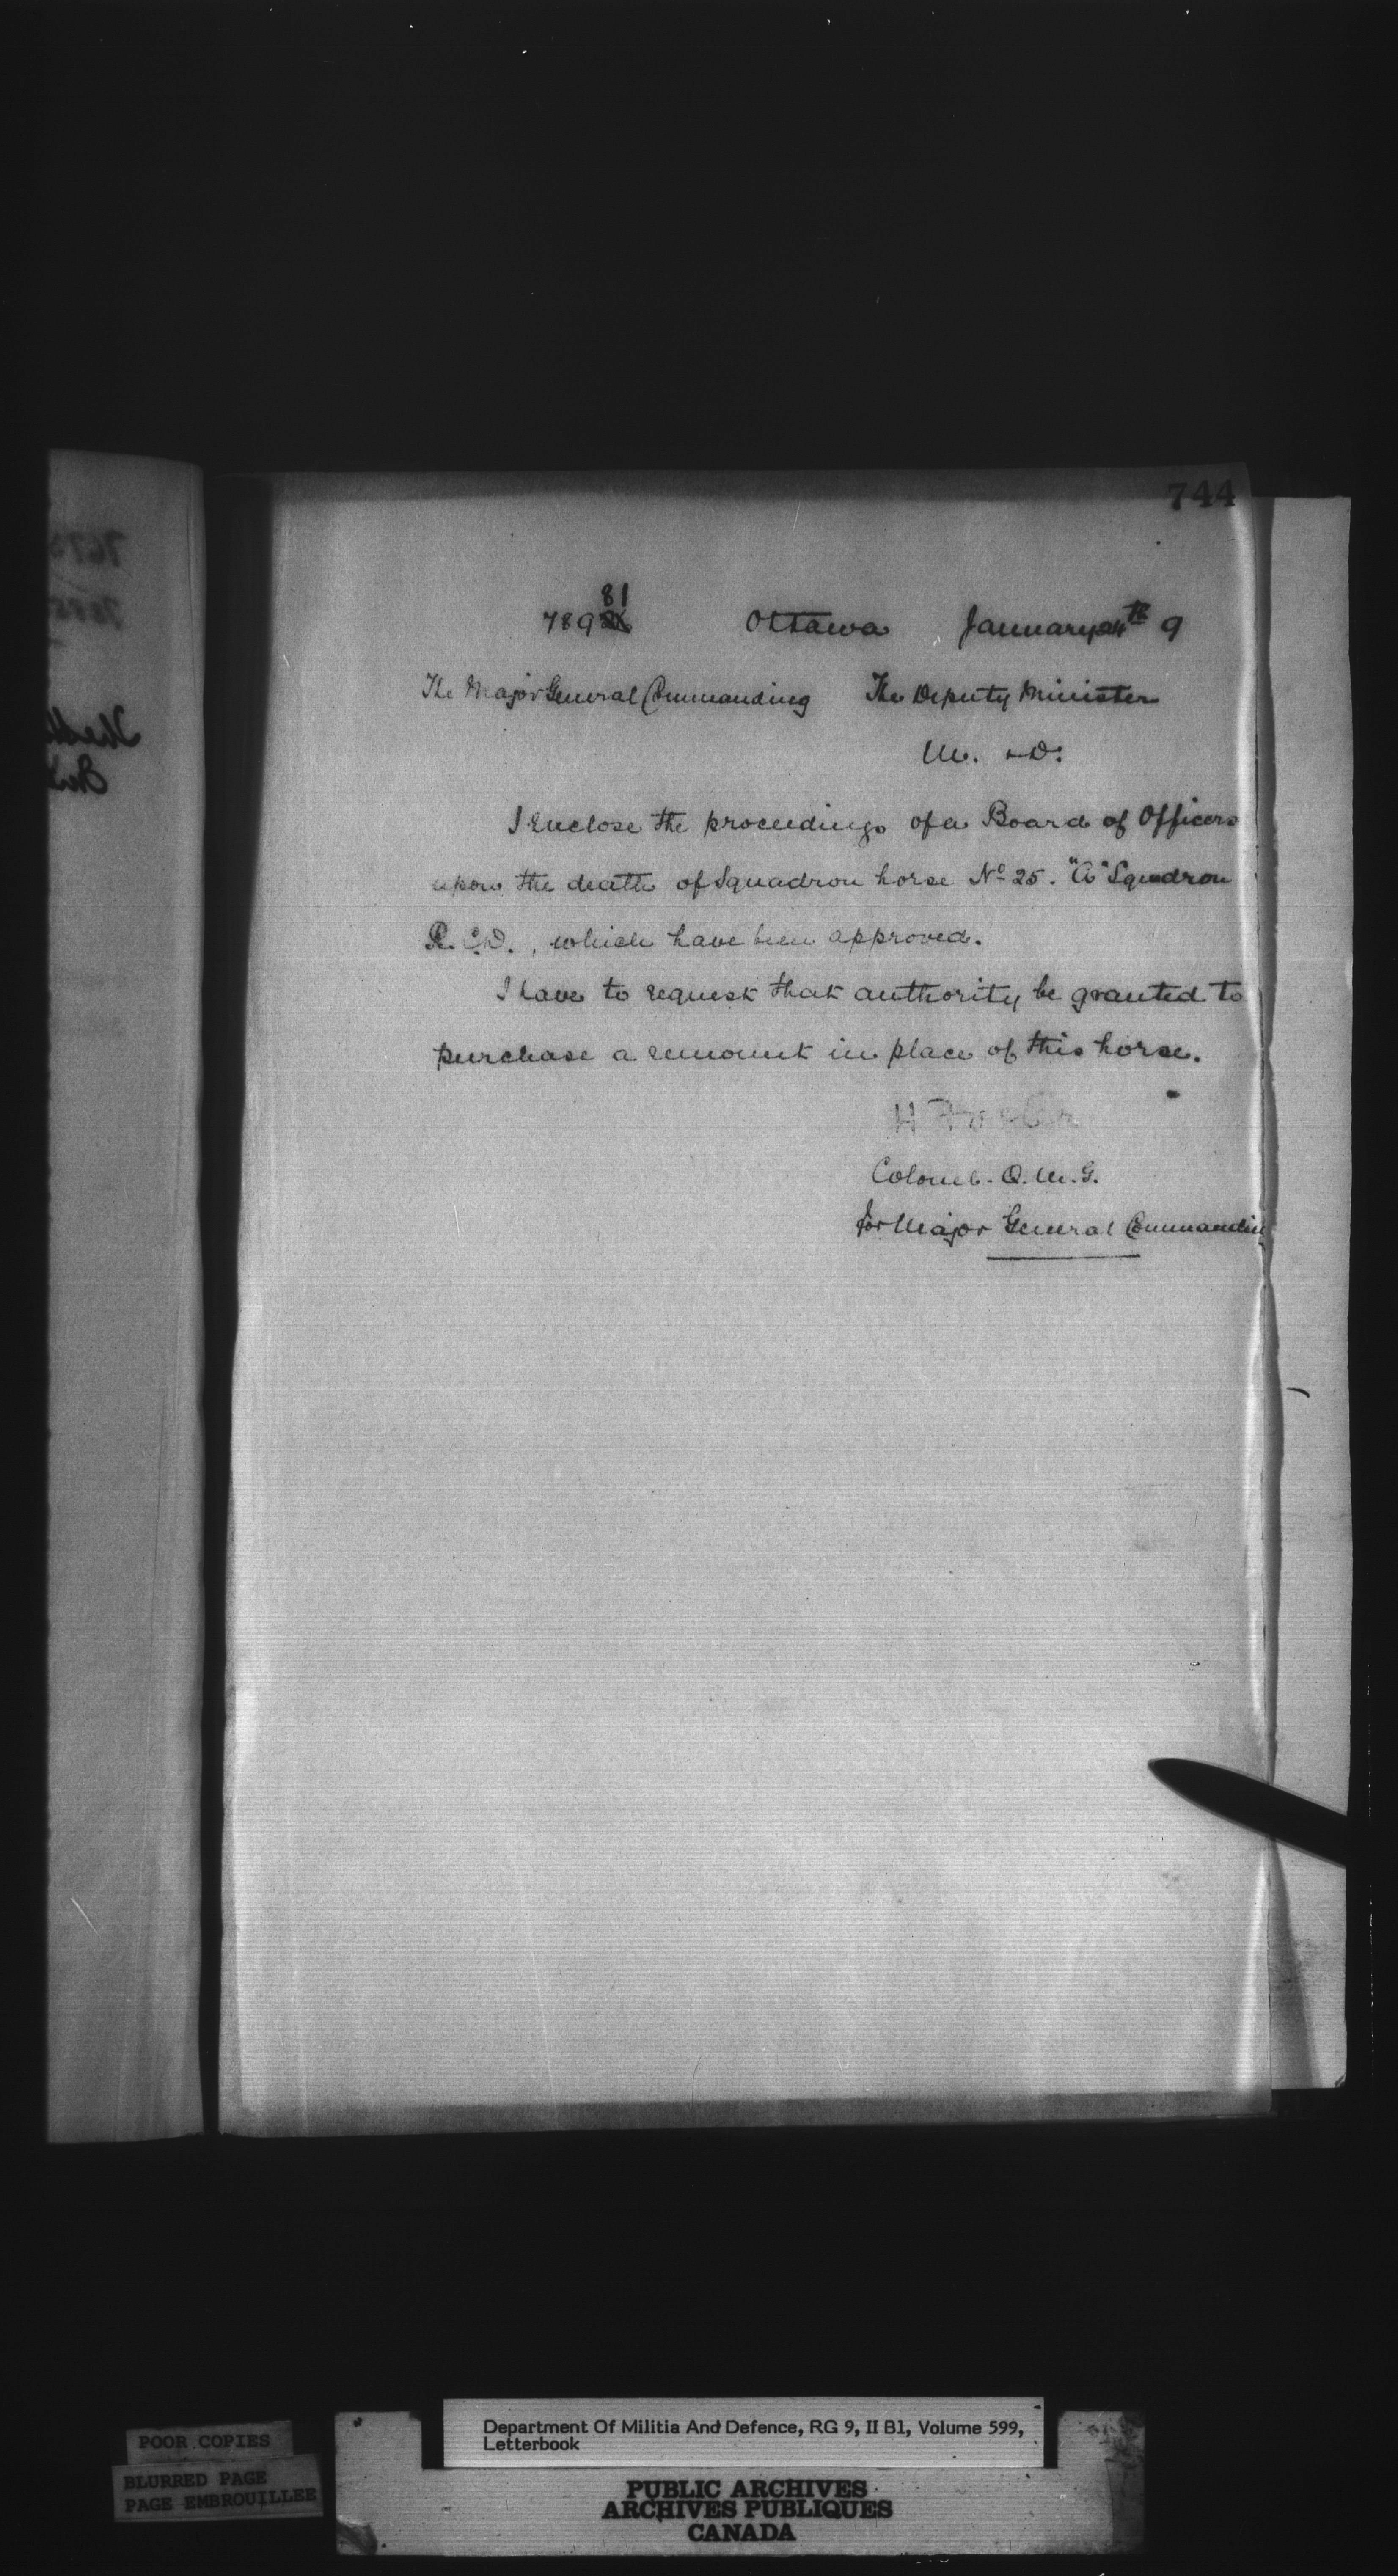 744
789 81 Ottawa January 24th 9
The Major General Commanding The Deputy Minister
M. & D.
I enclose the proceedings of a Board of Officers
upon the death of Squadron horse No 25. "A" Squadron
R.C.D., which have been approved.
I have to request that authority be granted to
purchase a remount in place of this horse.
H
Colonel. Q.M.G.
for Major General Commanding
POOR COPIES
BLURRED PAGE
PAGE EMBROUILLEE
Department Of Militia And Defence, RG 9, II B1, Volume 599,
Letterbook
PUBLIC ARCHIVES
ARCHIVES PUBLIQUES
CANADA